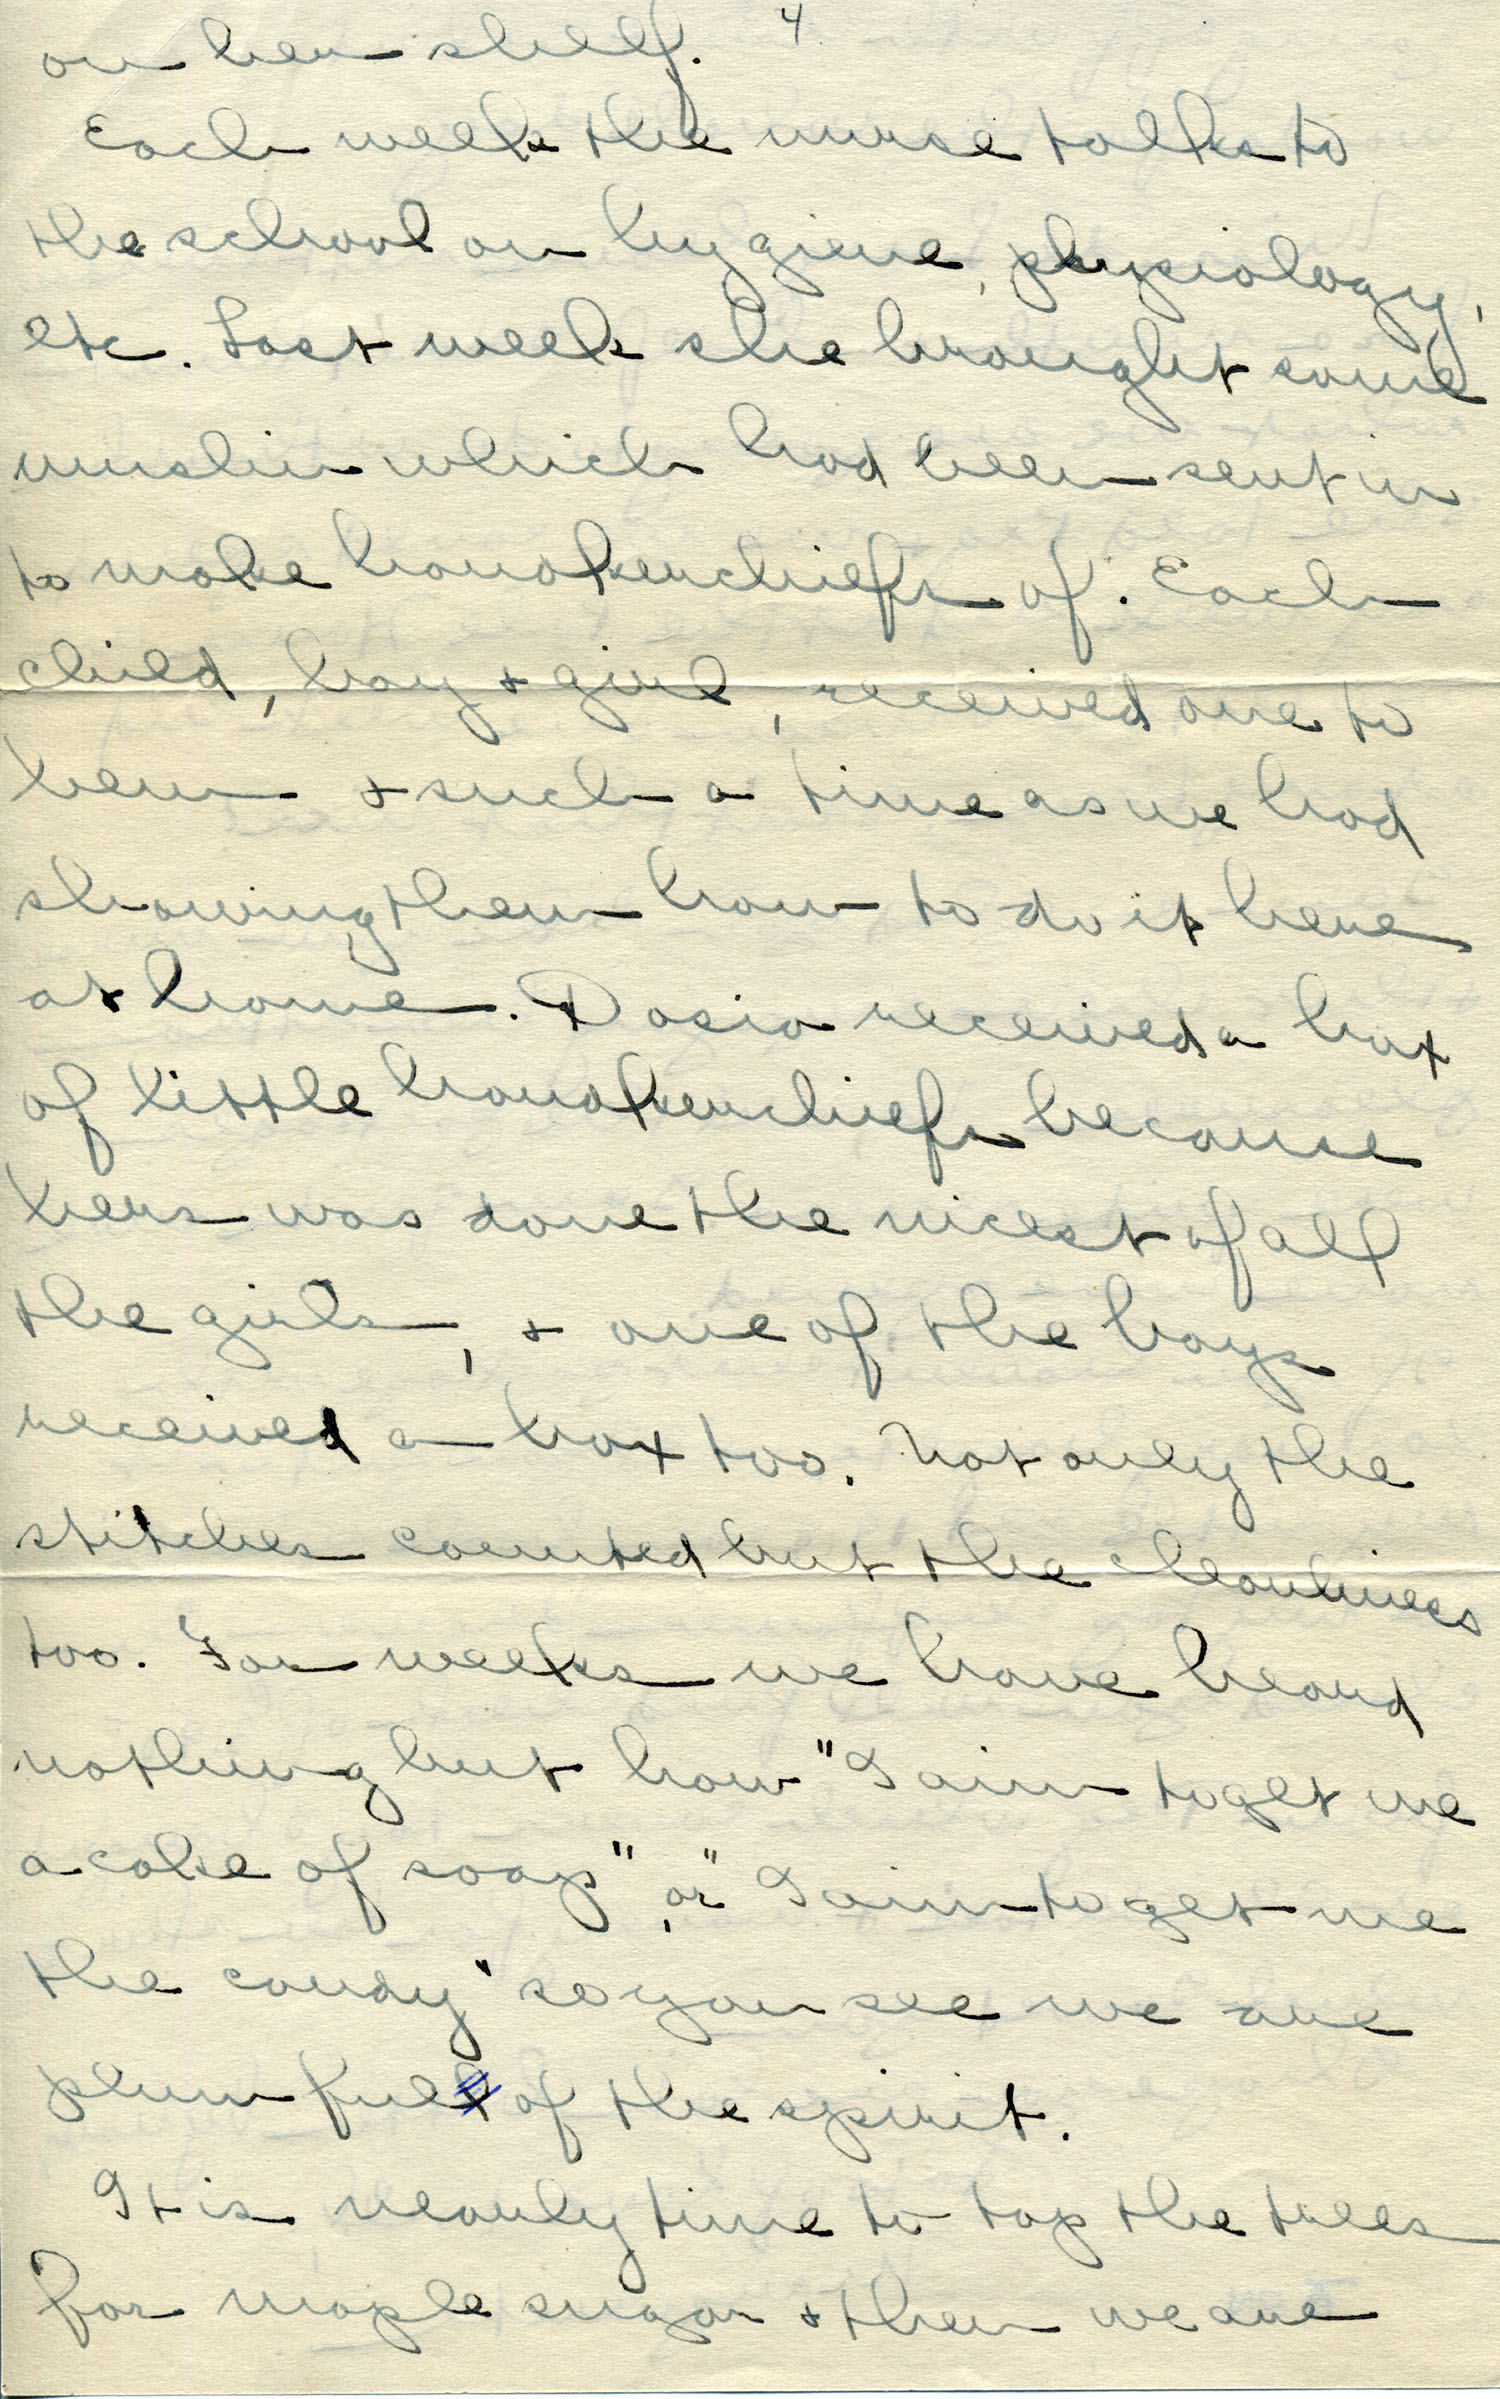 4
on her shelf.
Each week the nurse talks to
the school on hygiene, physiology,
etc. Last week she brought some
muslin which had been sent in
to make handkerchiefs of. Each
child, boy & girl, received one to
hem & such a time as we had
showing them how to do it here
at home. Dosia received a box
of little handkerchiefs because
hers was done the nicest of all
the girls, & one of the boys
received a box too. Not only the
stitches counted but the cleanliness
too. For weeks we have heard
nothing but how "I aim to get me
a cake of soap", or "I aim to get me
the candy" so you see we are
plum full of the spirit.
It is nearly time to tap the trees
for maple sugar & then we are